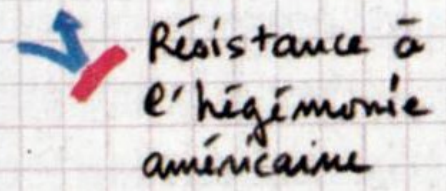 Résistance à
l'hégémonie
américaine